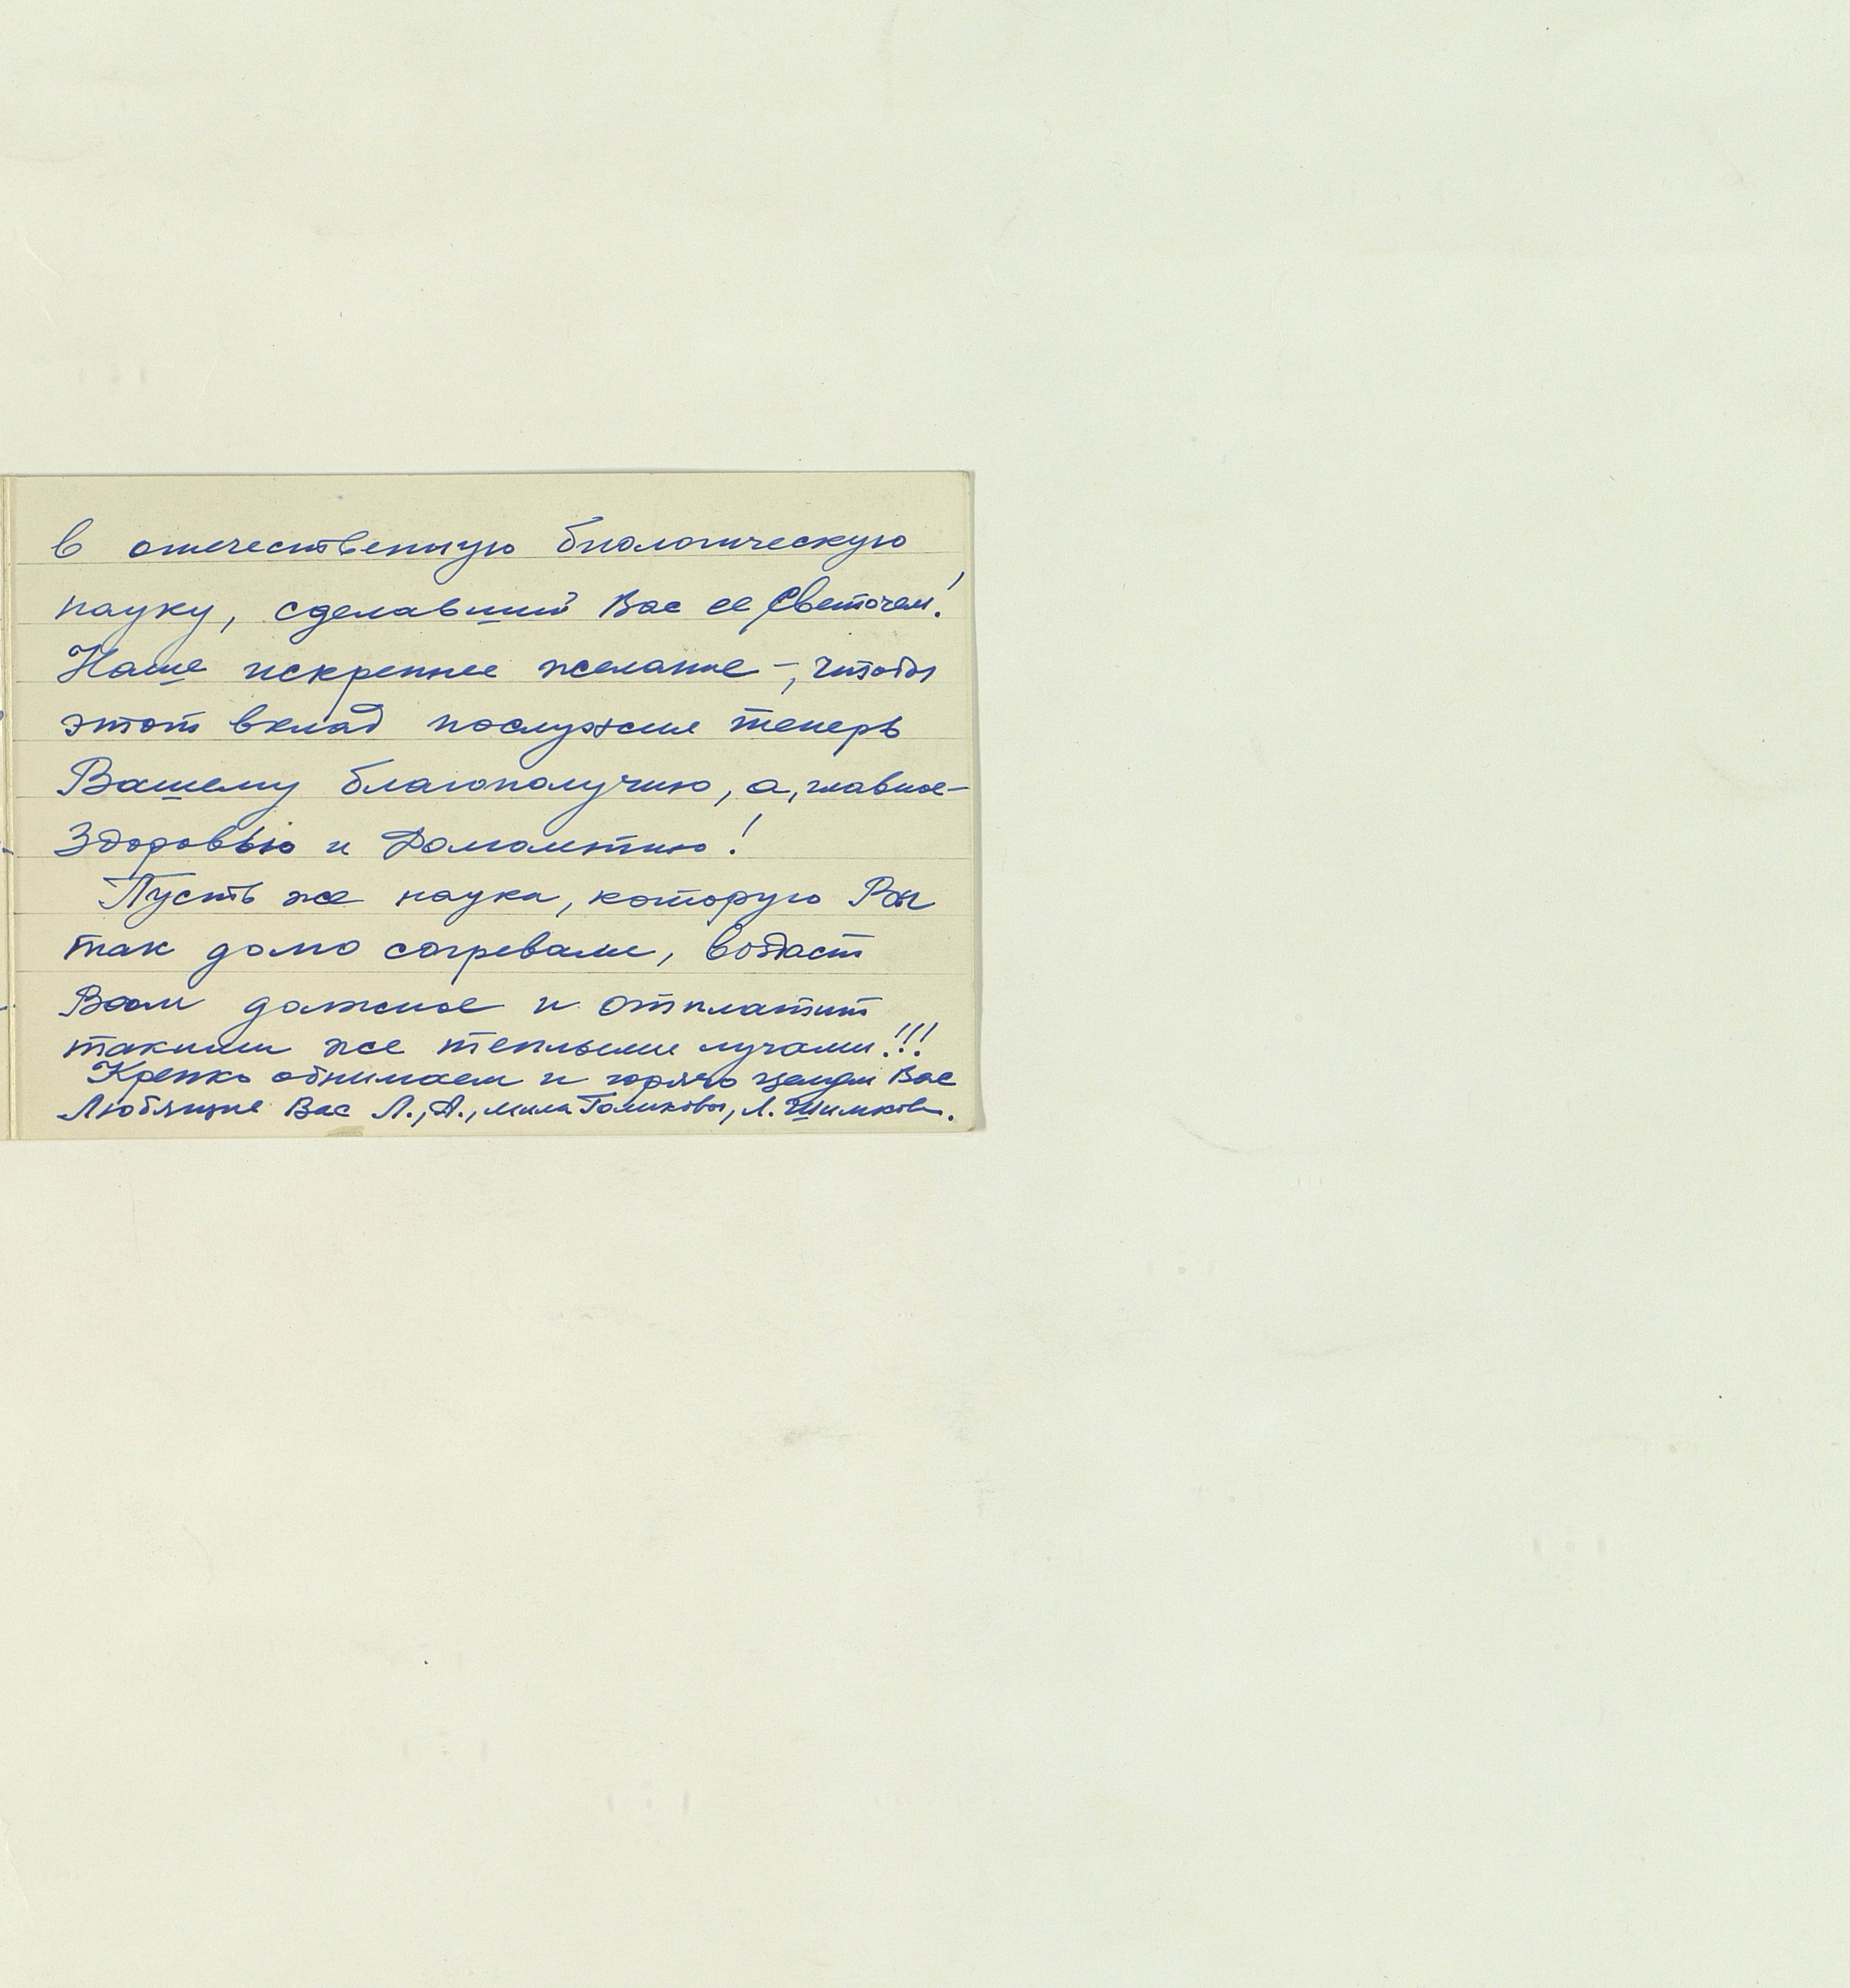 в отечественную биологическую
науку, сделавший Вас ее Светочем!
Наше искреннее желание –, чтобы
этот вклад послужил теперь
Вашему благополучию, а, главное –
Здоровью и Долголетию!
Пусть же наука, которую Вы
так долго согревали, воздаст
Вам должное и отплатит
такими же теплыми лучами!!!
Крепко обнимаем и горячо целуем Вас
Любящие Вас Л., А., мила Голиковы, Л. Шимков.